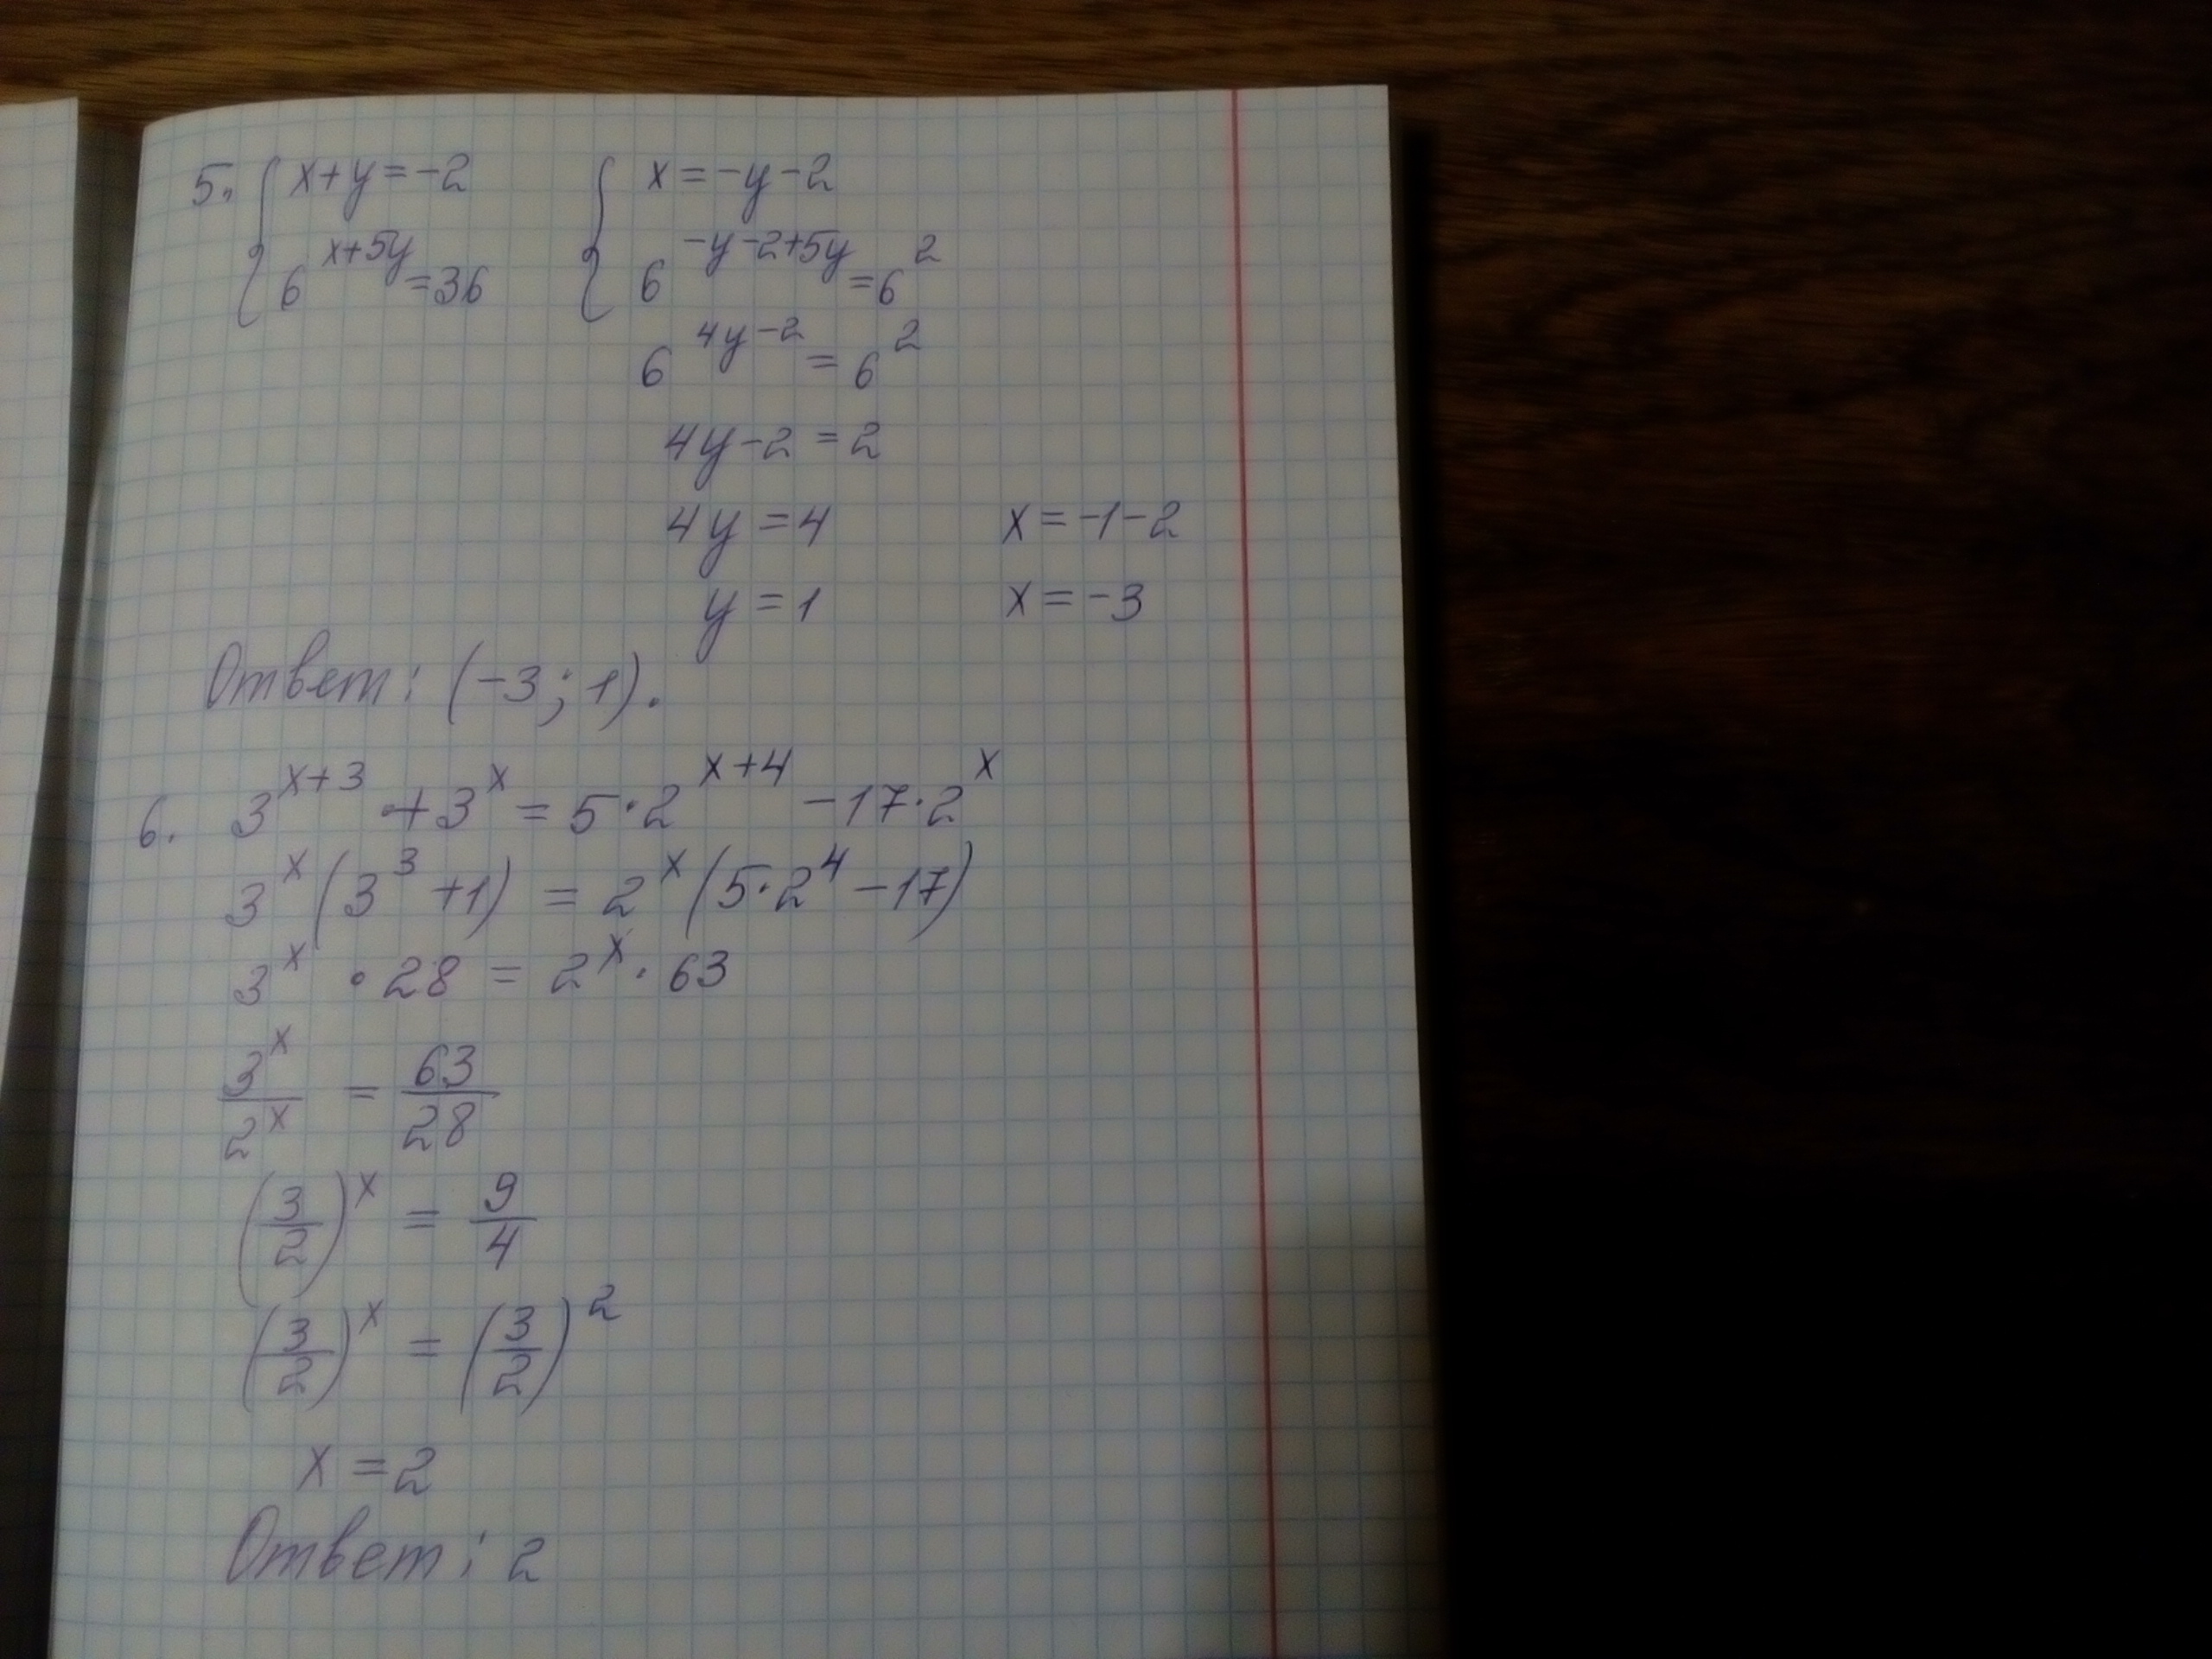 5. { x+y=-2 { x=-y-2
6^{x+5y}=36 6^{-y-2+5y}=6^2
6^{4y-2}=6^2
4y-2=2
4y=4 x=-1-2
y=1 x=-3
Ответ: (-3; 1).
6. 3^{x+3}+3^x=5·2^{x+4}-17·2^x
3^x(3^3+1)=2^x(5·2^4-17)
3^x·28=2^x·63
3^x/2^x=63/28
(3/2)^x=9/4
(3/2)^x=(3/2)^2
x=2
Ответ: 2